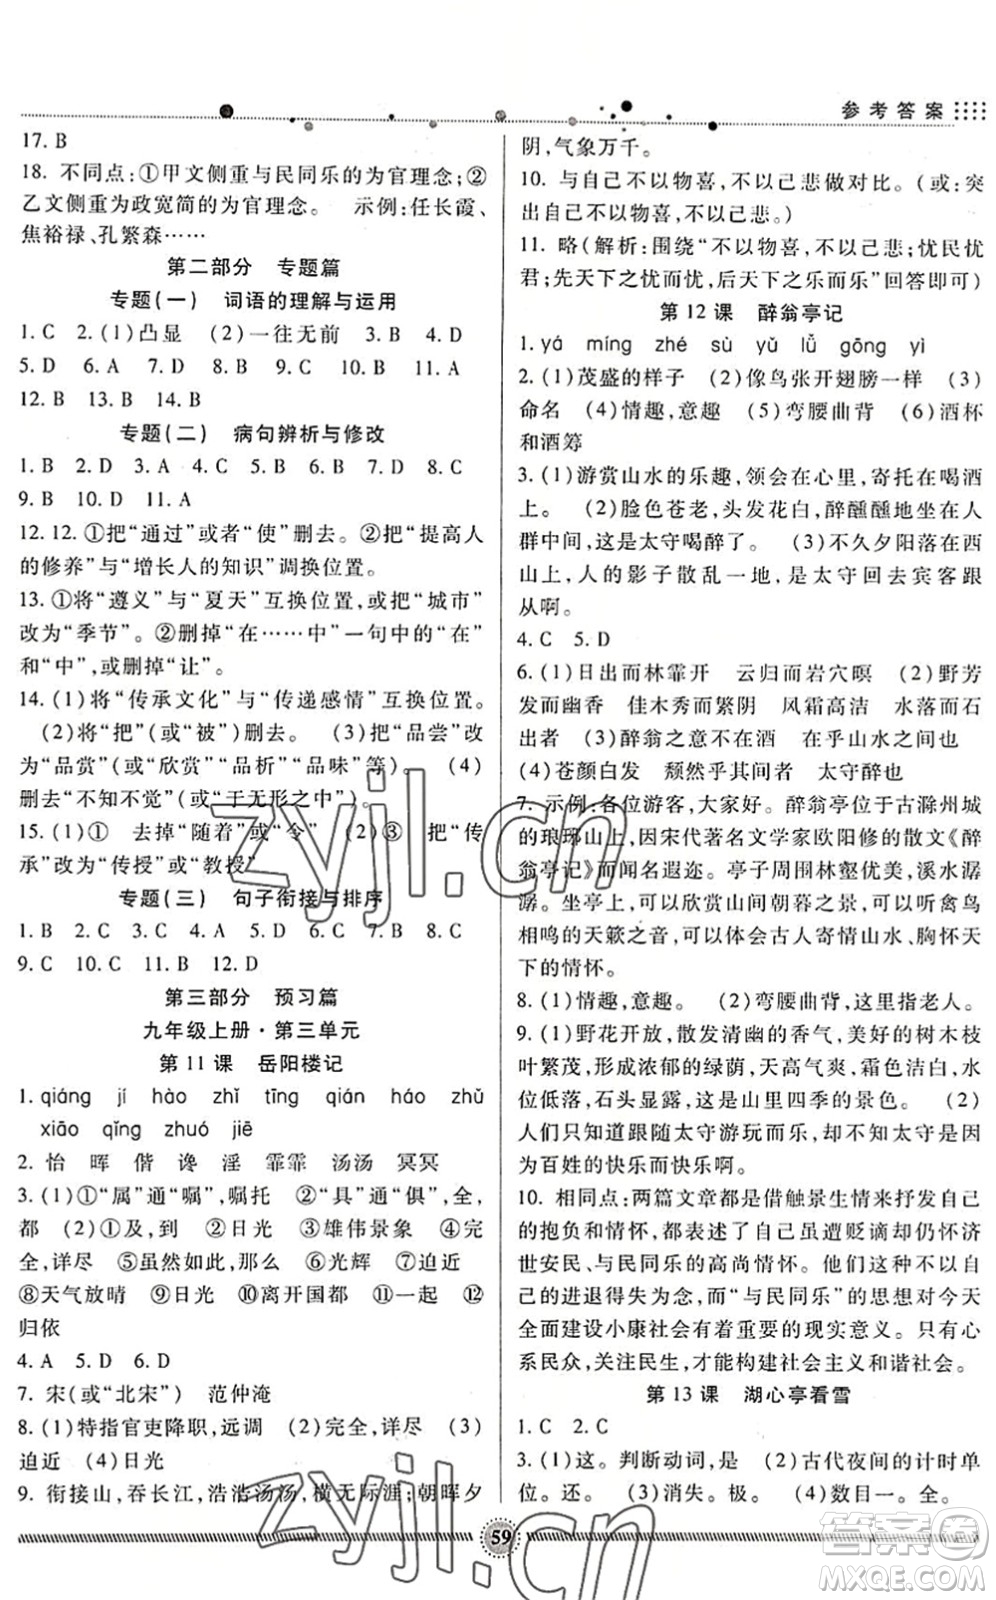 参考答案
17. B
18. 不同点:①甲文侧重与民同乐的为官理念;②
乙文侧重为政宽简的为官理念。 示例:任长霞、
焦裕禄、孔繁森……
第二部分 专题篇
专题(一) 词语的理解与运用
1. C 2. (1)凸显 (2)一往无前 3. B 4. D
5. D 6. A 7. D 8. B 9. A 10. B 11. A
12. B 13. B 14. B
专题(二) 病句辨析与修改
1. B 2. D 3. A 4. C 5. D 6. B 7. D 8. C
9. B 10. D 11. A
12. 12. ①把“通过”或者“使”删去。②把“提高人
的修养”与“增长人的知识”调换位置。
13. ①将“遵义”与“夏天”互换位置,或把“城市”
改为“季节”。②删掉“在……中”一句中的“在”
和“中”,或删掉“让”。
14. (1)将“传承文化”与“传递感情”互换位置。
(2)将“把”(或“被”)删去。 (3)把“品尝”改
为“品赏”(或“欣赏”“品析”“品味”等)。 (4)
删去“不知不觉”(或“于无形之中”)。
15. (1)① 去掉“随着”或“令” (2)③ 把“传
承”改为“传授”或“教授”
专题(三) 句子衔接与排序
1. B 2. B 3. C 4. A 5. D 6. D 7. B 8. C
9. C 10. C 11. B 12. D
第三部分 预习篇
九年级上册·第三单元
第 11 课 岳阳楼记
1. qiáng jí hào zhǐ tīng qián háo zhǔ
xiāo qǐng zhuó jiē
2. 怡 晖 偕 谗 淫 霏霏 汤汤 冥冥
3. (1)①“属”通“嘱”,嘱托 ②“具”通“俱”,全,
都 (2)①及,到 ②日光 ③雄伟景象 ④完
全,详尽 ⑤虽然如此,那么 ⑥光辉 ⑦迫近
⑧天气放晴 ⑨日光 ⑩离开国都 ⑪一起 ⑫
归依
4. A 5. D 6. D
7. 宋(或“北宋”) 范仲淹
8. (1)特指官吏降职,远调 (2)完全,详尽 (3)
迫近 (4)日光
9. 衔接山,吞长江,浩浩汤汤,横无际涯;朝晖夕
阴,气象万千。
10. 与自己不以物喜,不以己悲做对比。(或:突
出自己不以物喜,不以己悲。)
11. 略(解析:围绕“不以物喜,不以己悲;忧民忧
君;先天下之忧而忧,后天下之乐而乐”回答即可)
第 12 课 醉翁亭记
1. yá míng zhé sù yǔ lǚ gōng yì
2. (1)茂盛的样子 (2)像鸟张开翅膀一样 (3)
命名 (4)情趣,意趣 (5)弯腰曲背 (6)酒杯
和酒筹
3. (1)游赏山水的乐趣,领会在心里,寄托在喝酒
上。 (2)脸色苍老,头发花白,醉醺醺地坐在人
群中间,这是太守喝醉了。 (3)不久夕阳落在西
山上,人的影子散乱一地,是太守回去宾客跟
从啊。
4. C 5. D
6. (1)日出而林霏开 云归而岩穴暝 (2)野芳
发而幽香 佳木秀而繁阴 风霜高洁 水落而石
出者 (3)醉翁之意不在酒 在乎山水之间也
(4)苍颜白发 颓然乎其间者 太守醉也
7. 示例:各位游客,大家好。醉翁亭位于古滁州城
的琅琊山上,因宋代著名文学家欧阳修的散文《醉
翁亭记》而闻名遐迩。亭子周围林壑优美,溪水潺
潺。坐亭上,可以欣赏山间朝暮之景,可以听禽鸟
相鸣的天籁之音,可以领会古人寄情山水、胸怀天
下的情怀。
8. (1)情趣,意趣。 (2)弯腰曲背,这里指老人。
9. (1)野花开放,散发清幽的香气,美好的树木枝
叶繁茂,形成浓郁的绿荫,天高气爽,霜色洁白,水
位低落,石头显露,这是山里四季的景色。 (2)
人们只知道跟随太守游玩而乐,却不知道太守因
为百姓的快乐而快乐啊。
10. 相同点:两篇文章都是借触景生情来抒发自己
的抱负和情怀,都表述了自己虽遭贬谪却仍怀济
世安民、与民同乐的高尚情怀。他们这种不以自己
的进退得失为念,而“与民同乐”的思想对今天
全面建设小康社会有着重要的现实意义。只有心
系民众,关注民生,才能构建社会主义和谐社会。
第 13 课 湖心亭看雪
1. C 2. C
3. (1)这。判断动词,是。 (2)古代夜间的计时单
位。还。 (3)消失。极。 (4)数目一。全。
59
zyjl.cn
zyjl.cn
答案圈
MXQE.COM